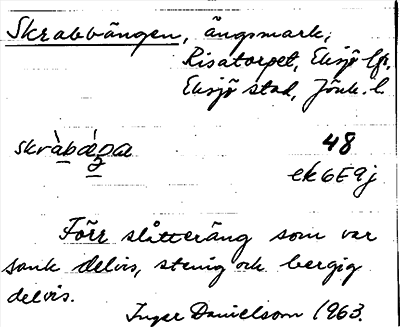 Skrabbängen, ängsmark,
Risatorpet, Eksjö lfs.
Eksjö stad, Jönk. l
skràbæ̀ŋa 48
ek6E9j
Förr slåtteräng som var
sank delvis, stenig och bergig
delvis.
Inger Danielsson 1963.